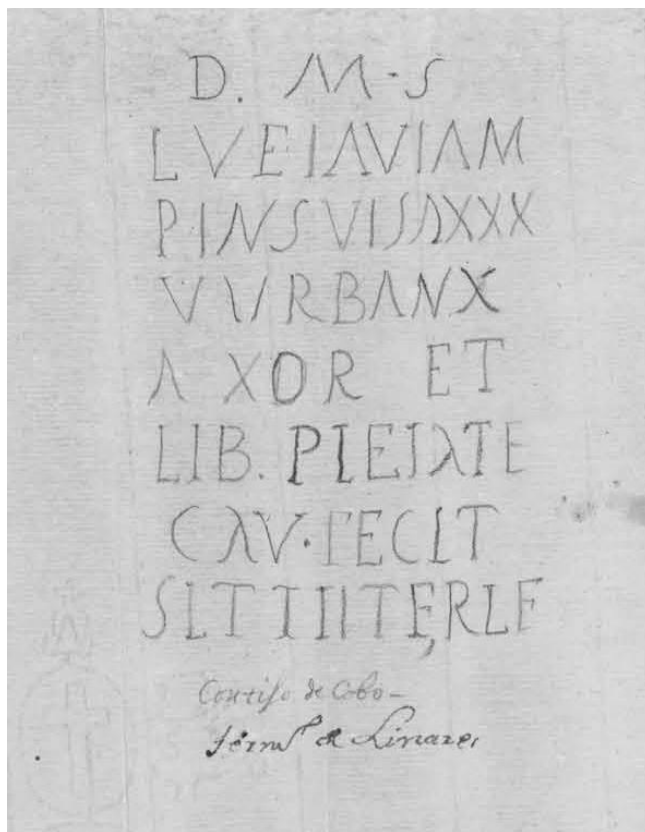 D. M·S
LVEIAVIAM
PINSVISAXXX
VVRBANX
A XOR ET
LIB. PIEIATE
CAV·FECIT
SLTTIITERLE
Cortijo de Cobo-
térmº de Linares